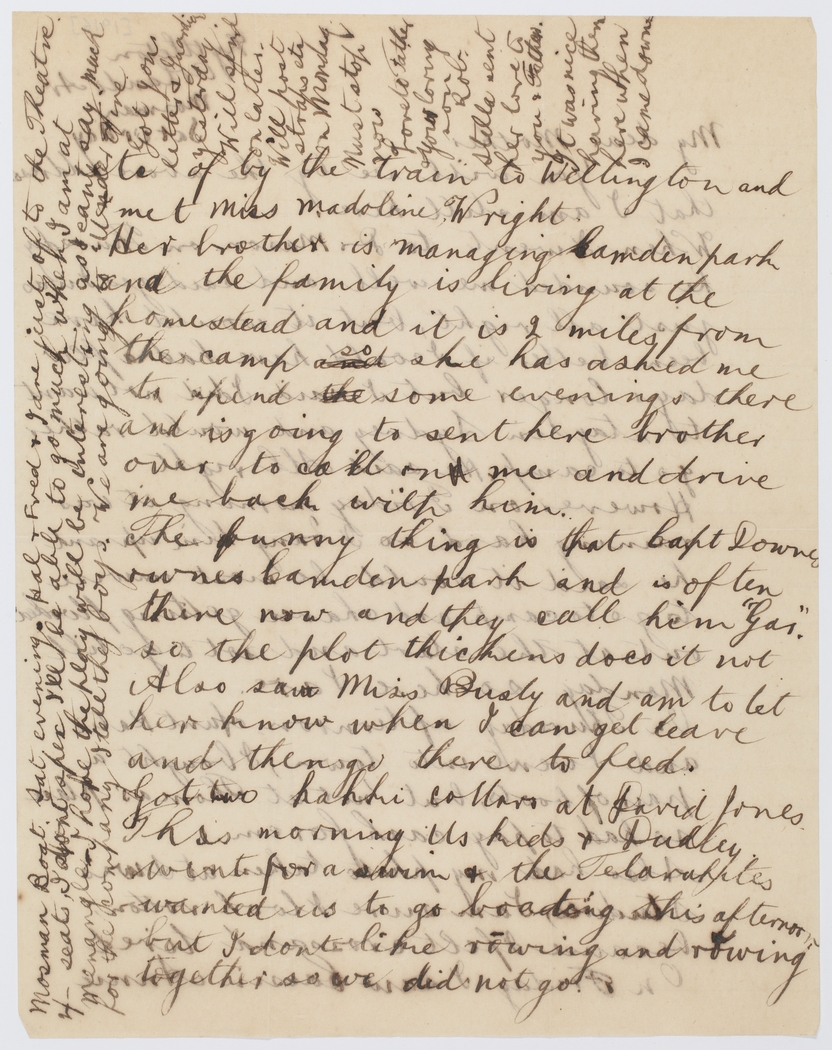 to of by the train to Wellington and
met Miss Madoline Wright.
Her brother is managing Camden park
and the family is living at the
homestead and it is 2 miles from
the camp and so she has asked me
to spend the some evenings there
and is going to sent here brother
over to call on me and drive
me back with him.
The funny thing is that Capt Downes
ownes Camden park and is often
there now and they call him "Gar".
so the plot thickens does it not
Also saw Miss Busby and am to let
her know when I can get leave
and then go there to feed.
Got two kahki collars at David Jones.
This morning Us kids & Dudley
went for a swim & the Telaraltes
wanted us to go boating this afternoon
but I dont like rowing and rowing
together so we did not go.
Mosman Boat. Sat evening. Hal & Fred & I are just of to the Theatre
4/- seats, I dont spec I'll be able to go much when I am at
Menangle. I hope the play will be interesting as I cant say much
for the company, Stella & the boys. We are going to "Under fire
Got Jons
letters
yesterday
Will write
on later.
Will post
straps etc
on Monday.
Must stop
now
love to Father
Your loving
son
Rob.
Stella sent
her love to
you & Father.
It was nice
having them
here when
I came down